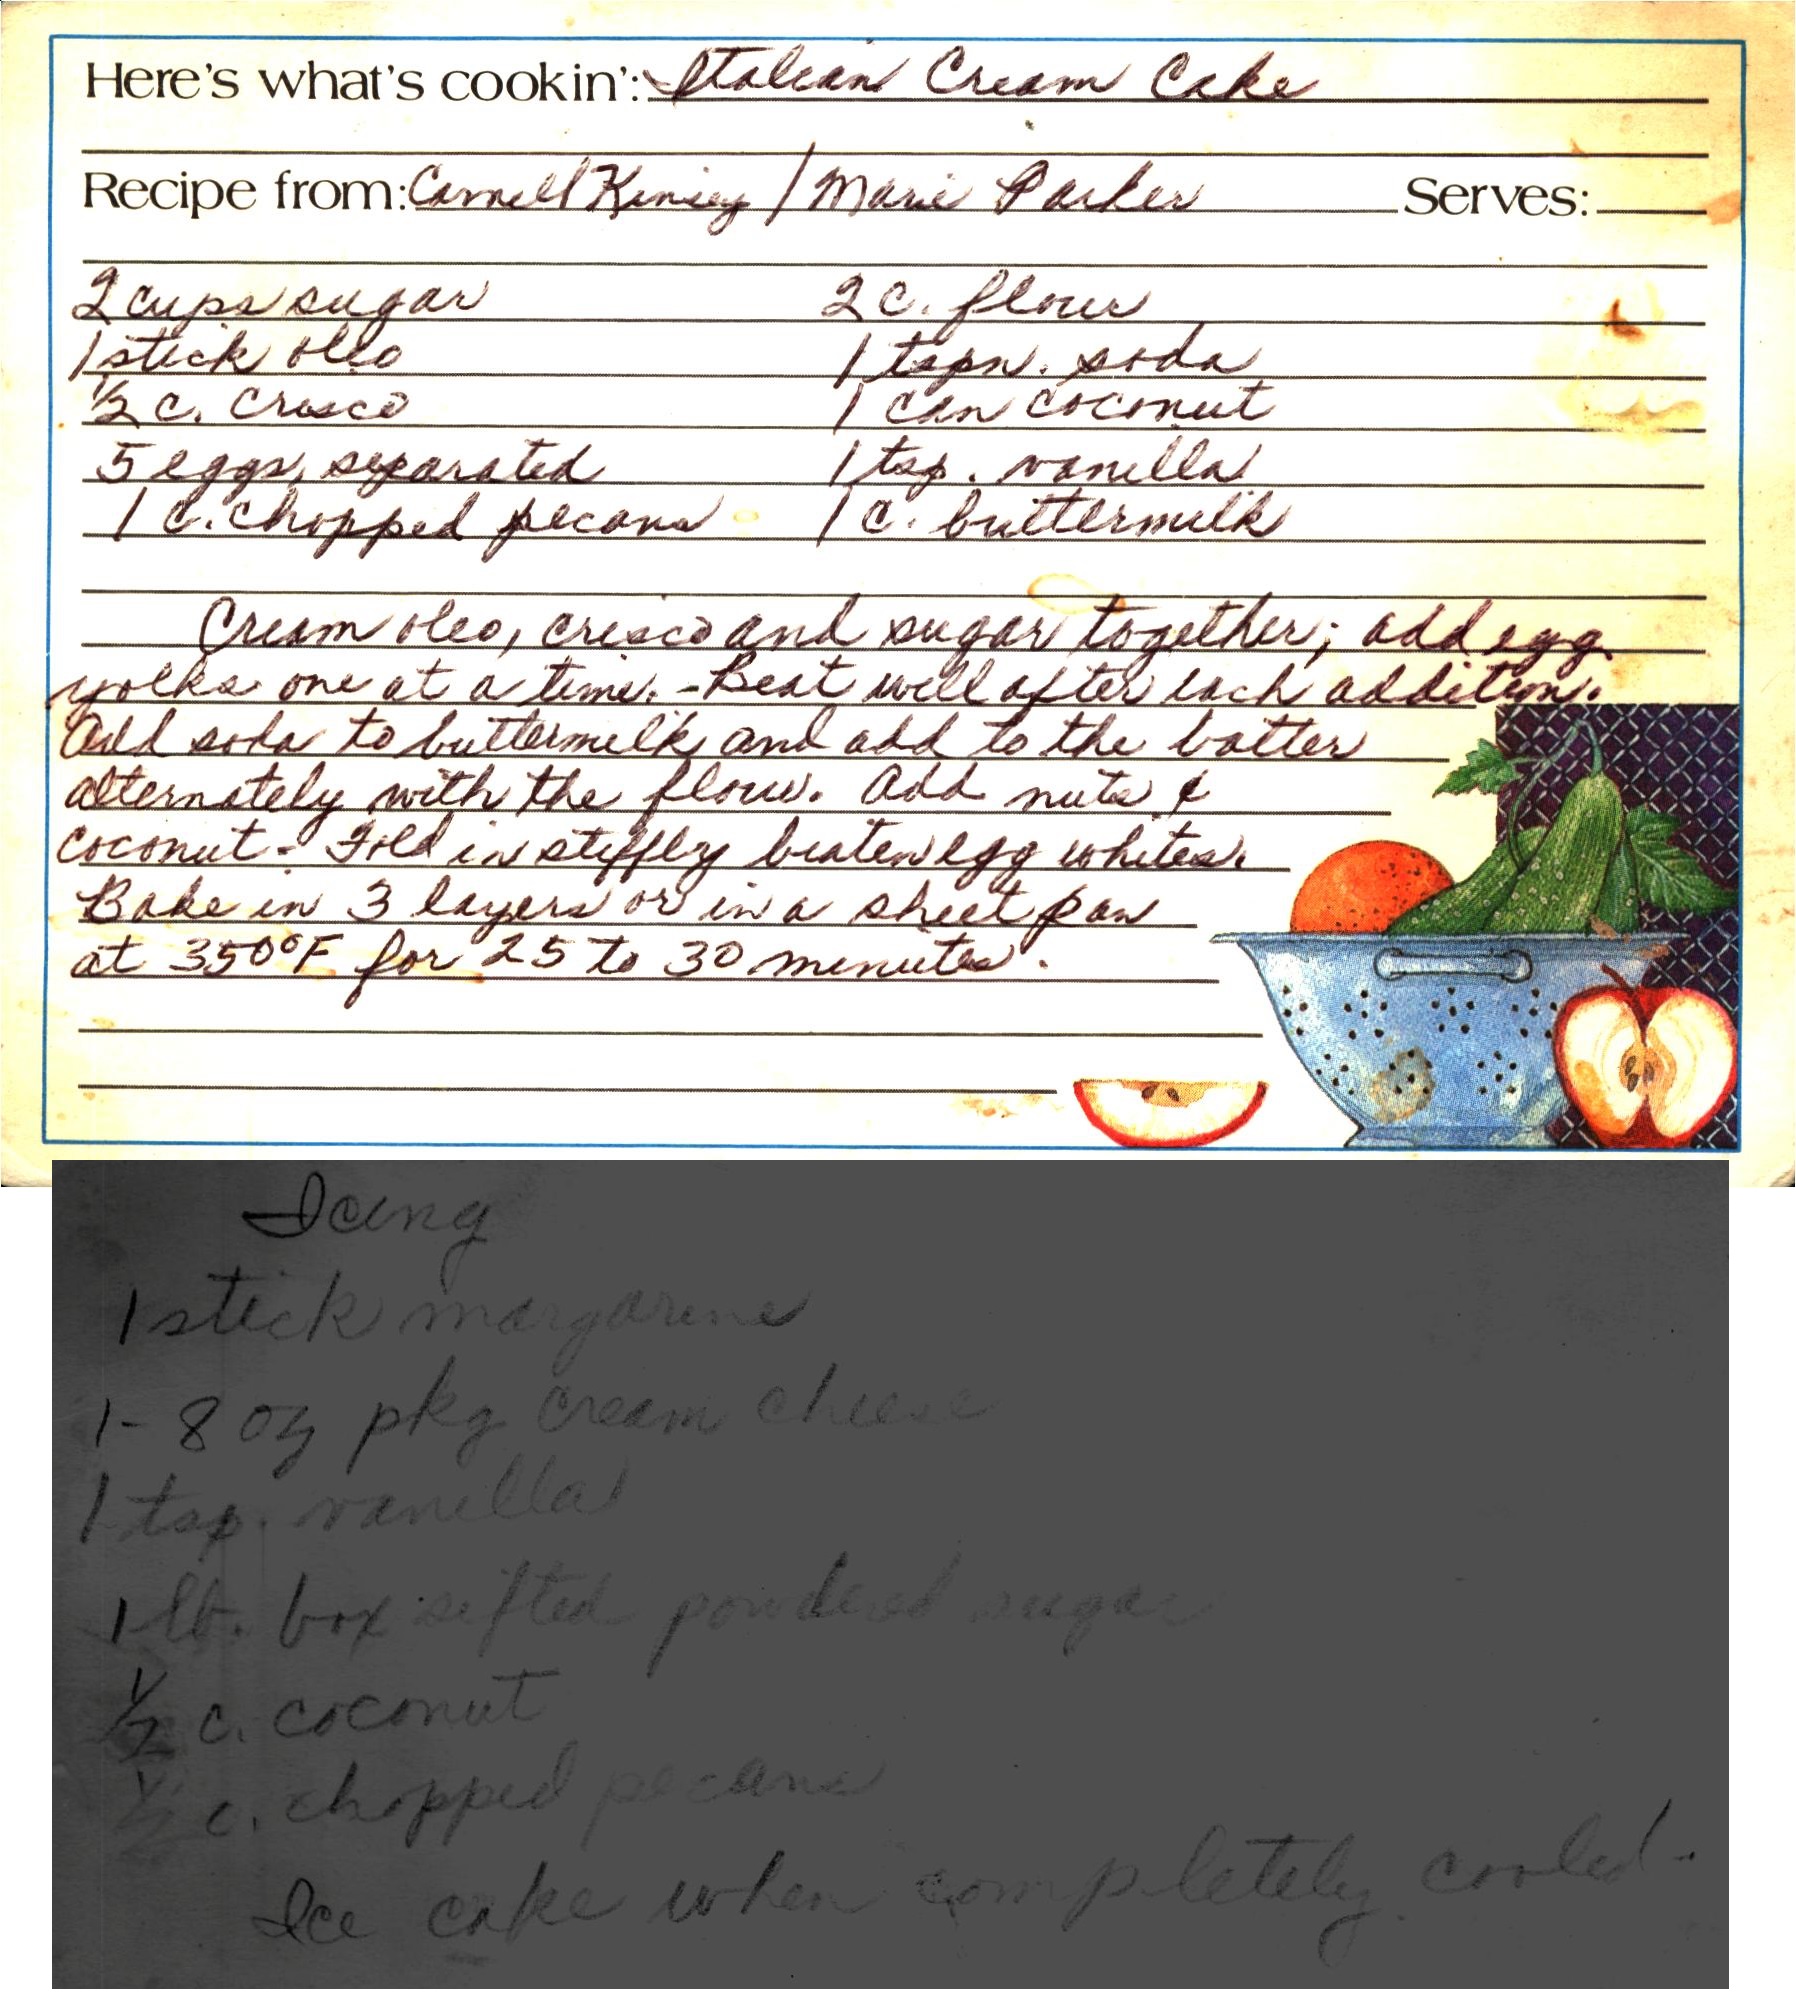 Here's what's cookin': Italian Cream Cake
Recipe from: Carnell Kinsey / Marie Parker Serves:
2 cups sugar 2 c. flour
1 stick oleo 1 tspn. soda
½ c. Crisco 1 can coconut
5 eggs, separated 1 tsp. vanilla
1 c. chopped pecans 1 c. buttermilk
Cream oleo, crisco and sugar together; add egg
yolks one at a time. - Beat well after each addition.
Add soda to buttermilk and add to the batter
alternately with the flour. Add nuts &
coconut - Fold in stiffly beaten egg whites.
Bake in 3 layers or in a sheet pan
at 350°F for 25 to 30 minutes.
Icing
1 stick margarine
1 - 8 oz pkg cream cheese
1 tsp. vanilla
1 lb. box sifted powdered sugar
½ c. coconut
½ c. chopped pecans
Ice cake when completely cooled -